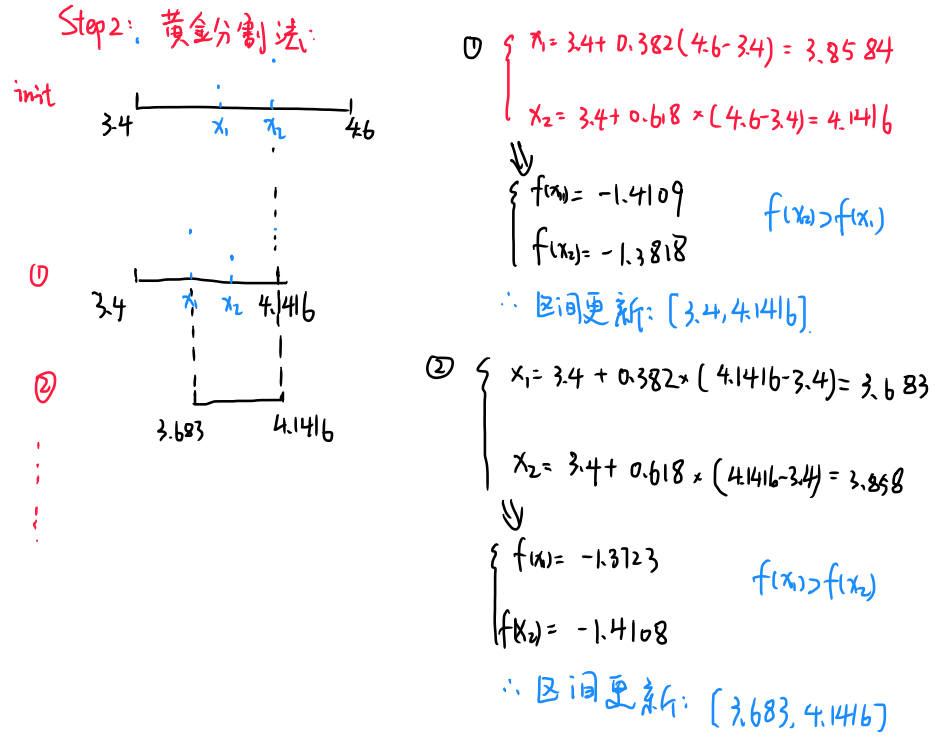 Step2: 黄金分割法:
init
3.4 x₁ x₂ 4.6
①
3.4 x₁ x₂ 4.1416
②
3.683 4.1416
① { x₁= 3.4+ 0.382(4.6-3.4) = 3.8584
x₂= 3.4+ 0.618 × (4.6-3.4)= 4.1416
⇓
{ f(x₁)= -1.4109
f(x₂)= -1.3818
f(x₂)>f(x₁)
∴ 区间更新: [3.4, 4.1416]
② { x₁= 3.4 + 0.382× (4.1416-3.4)= 3.683
x₂= 3.4+ 0.618 × (4.1416-3.4) = 3.858
⇓
{ f(x₁)= -1.3723
f(x₂)= -1.4108
f(x₁)>f(x₂)
∴ 区间更新: [3.683, 4.1416]